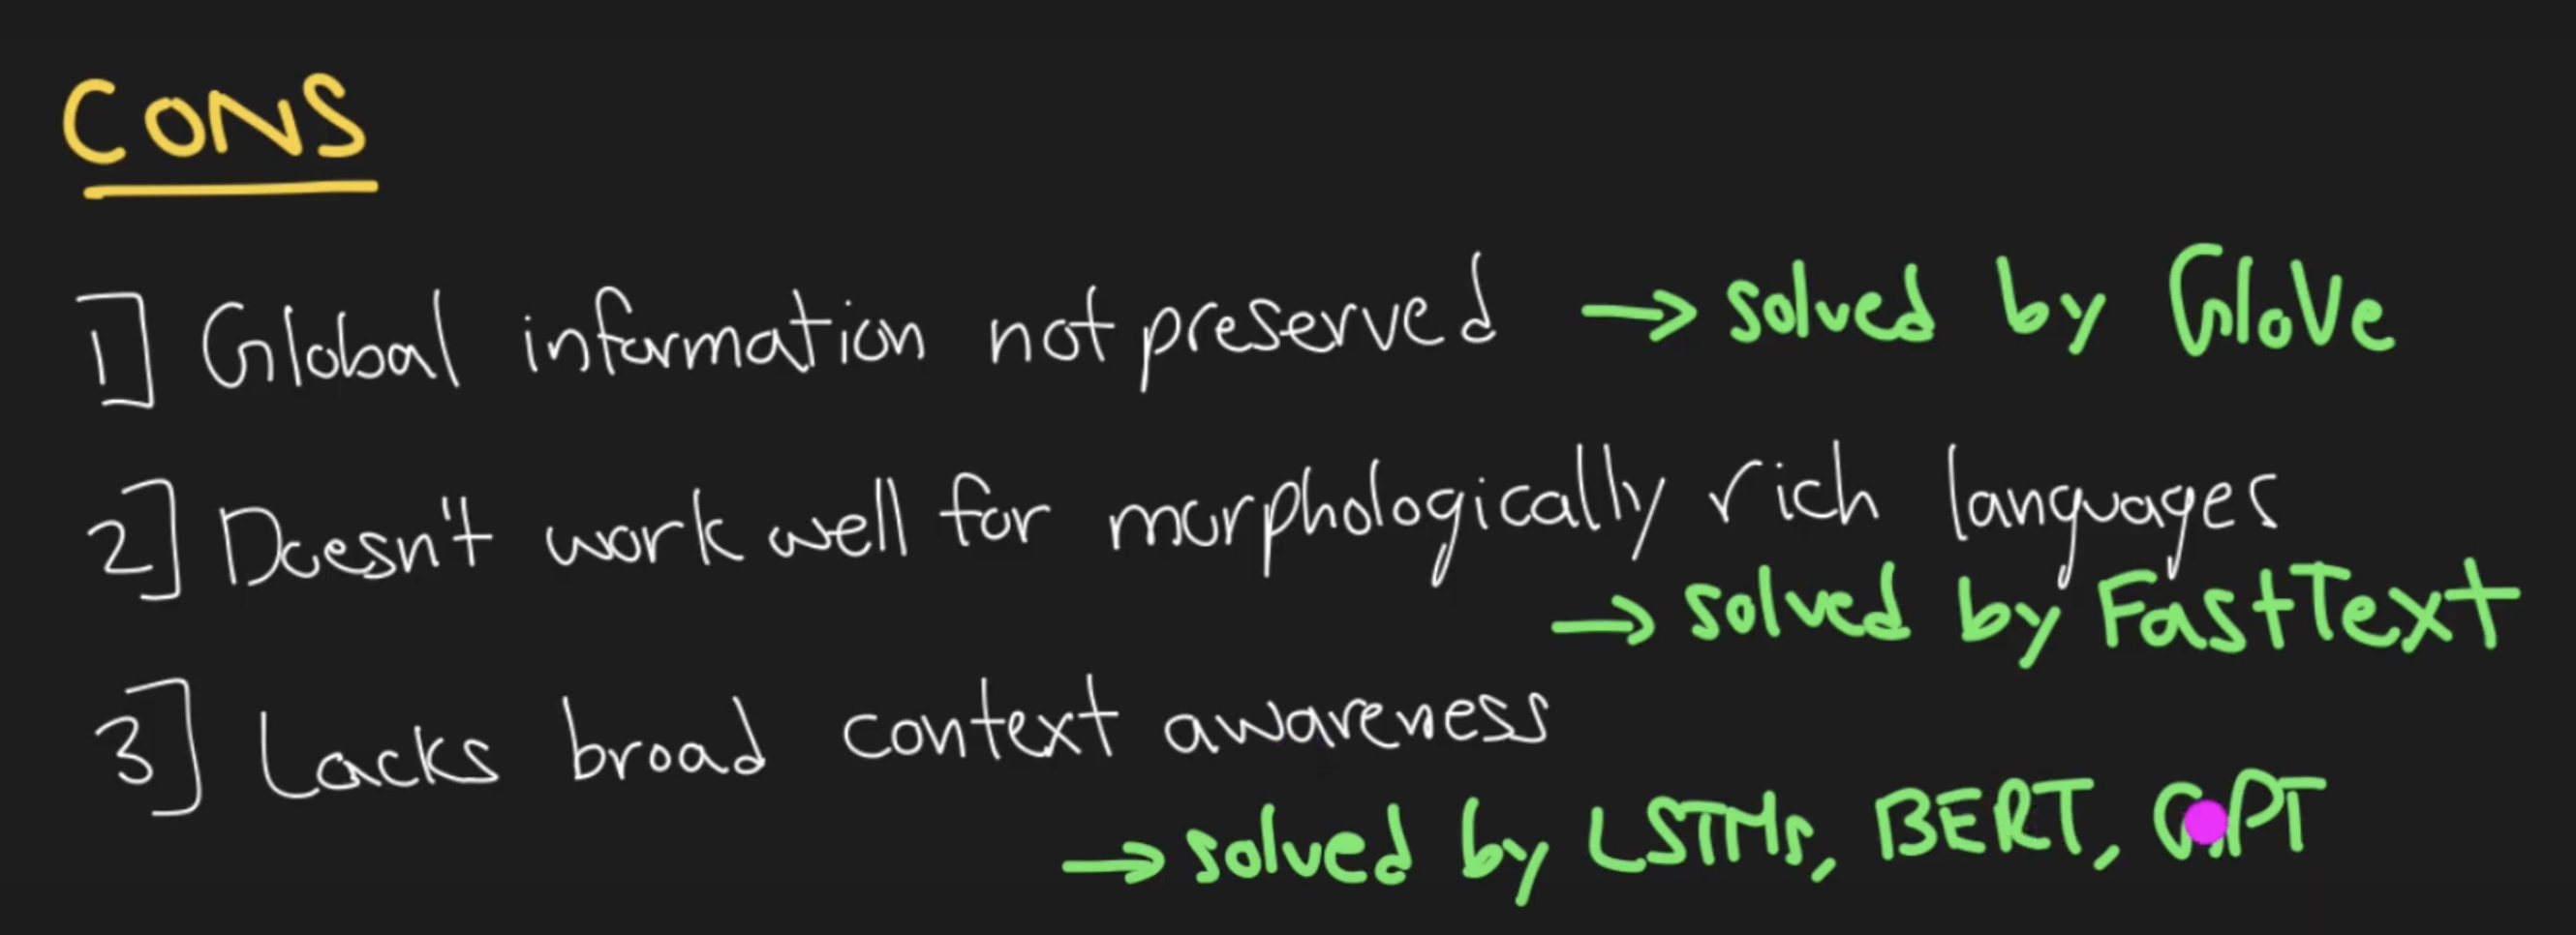 CONS
1] Global information not preserved → solved by GloVe
2] Doesn't work well for morphologically rich languages
→ solved by FastText
3] Lacks broad context awareness
→ solved by LSTMs, BERT, GPT